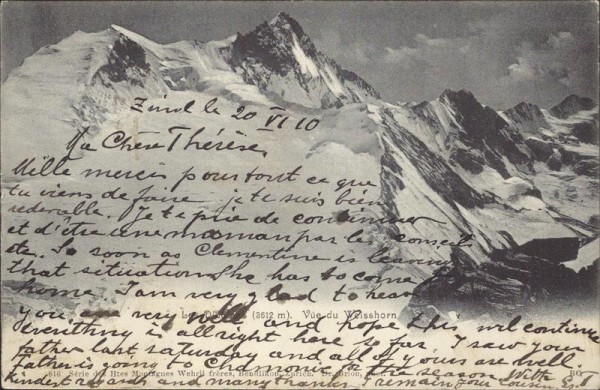 Zinal le 20 VI 10
Ma Chère Thérèse,
Mille mercis pour tout ce que
tu viens de faire je te suis bien
rederable. Je te prie de continuer
et d'être une maman par le conseil
etc. So soon as Clementine is leaving
that situation she has to come
home. I am very glad to hear
(3612 m). Vue du Weisshorn.
you are very good and hope this will continue
Everithing is allright here so far. I saw your
father last saturday and all of yours are well.
616 Série des Htes Montagnes Wehrli frères,
father is going to the season. With
kindest regards and many thanks I remain your